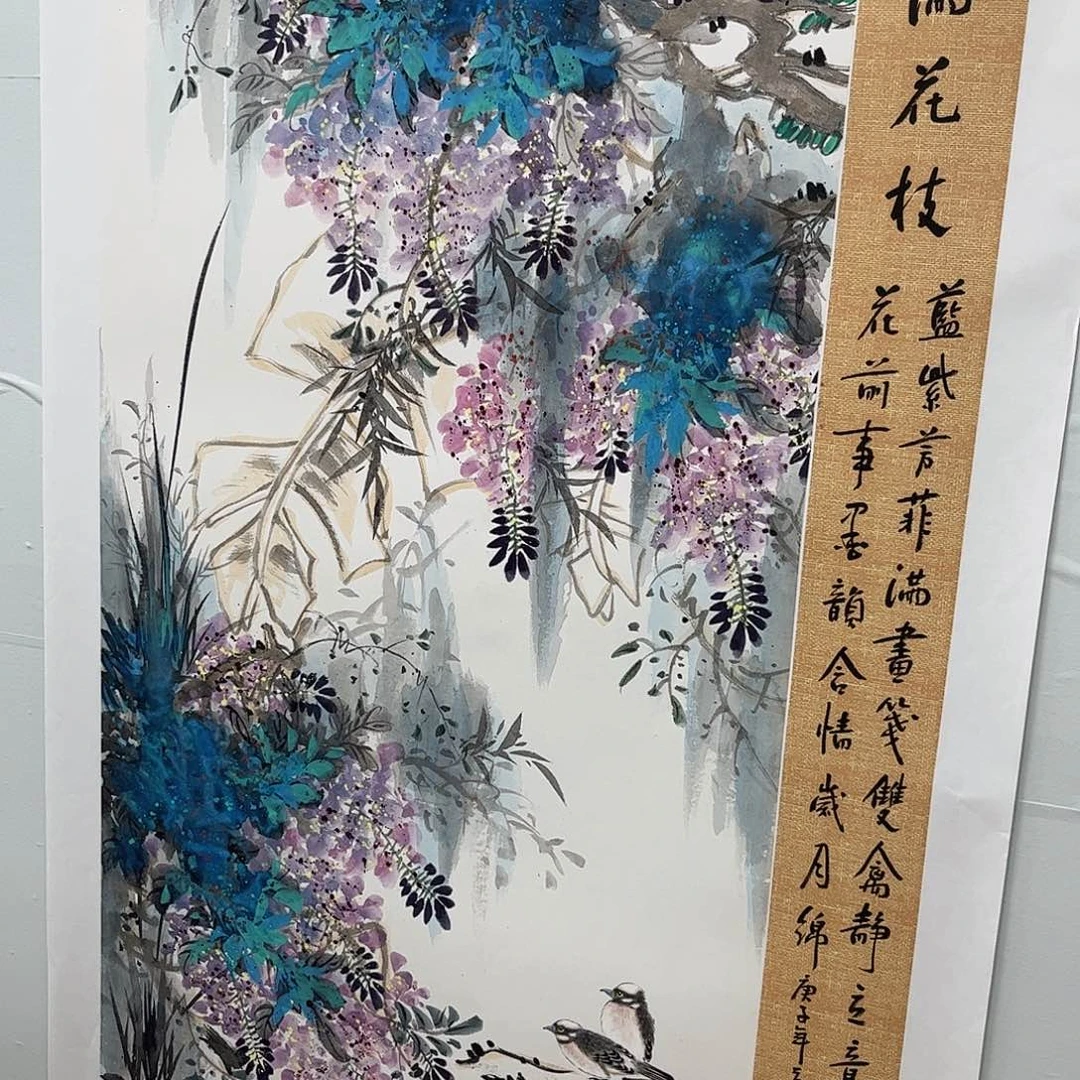 满花枝
藍紫芳菲满畫箋雙禽静立
花前事墨韻含情歲月綿
庚子年